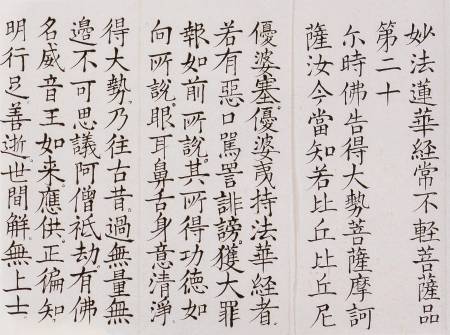 妙法蓮華經常不輕菩薩品
第二十
尒時佛告得大勢菩薩摩訶
薩汝今當知若比丘比丘尼
優婆塞優婆夷持法華經者
若有惡口罵詈誹謗獲大罪
報如前所說其所得功德如
向所說眼耳鼻舌身意清淨
得大勢乃往古昔過無量無
邊不可思議阿僧祇劫有佛
名威音王如来應供正徧知
明行足善逝世間解無上士